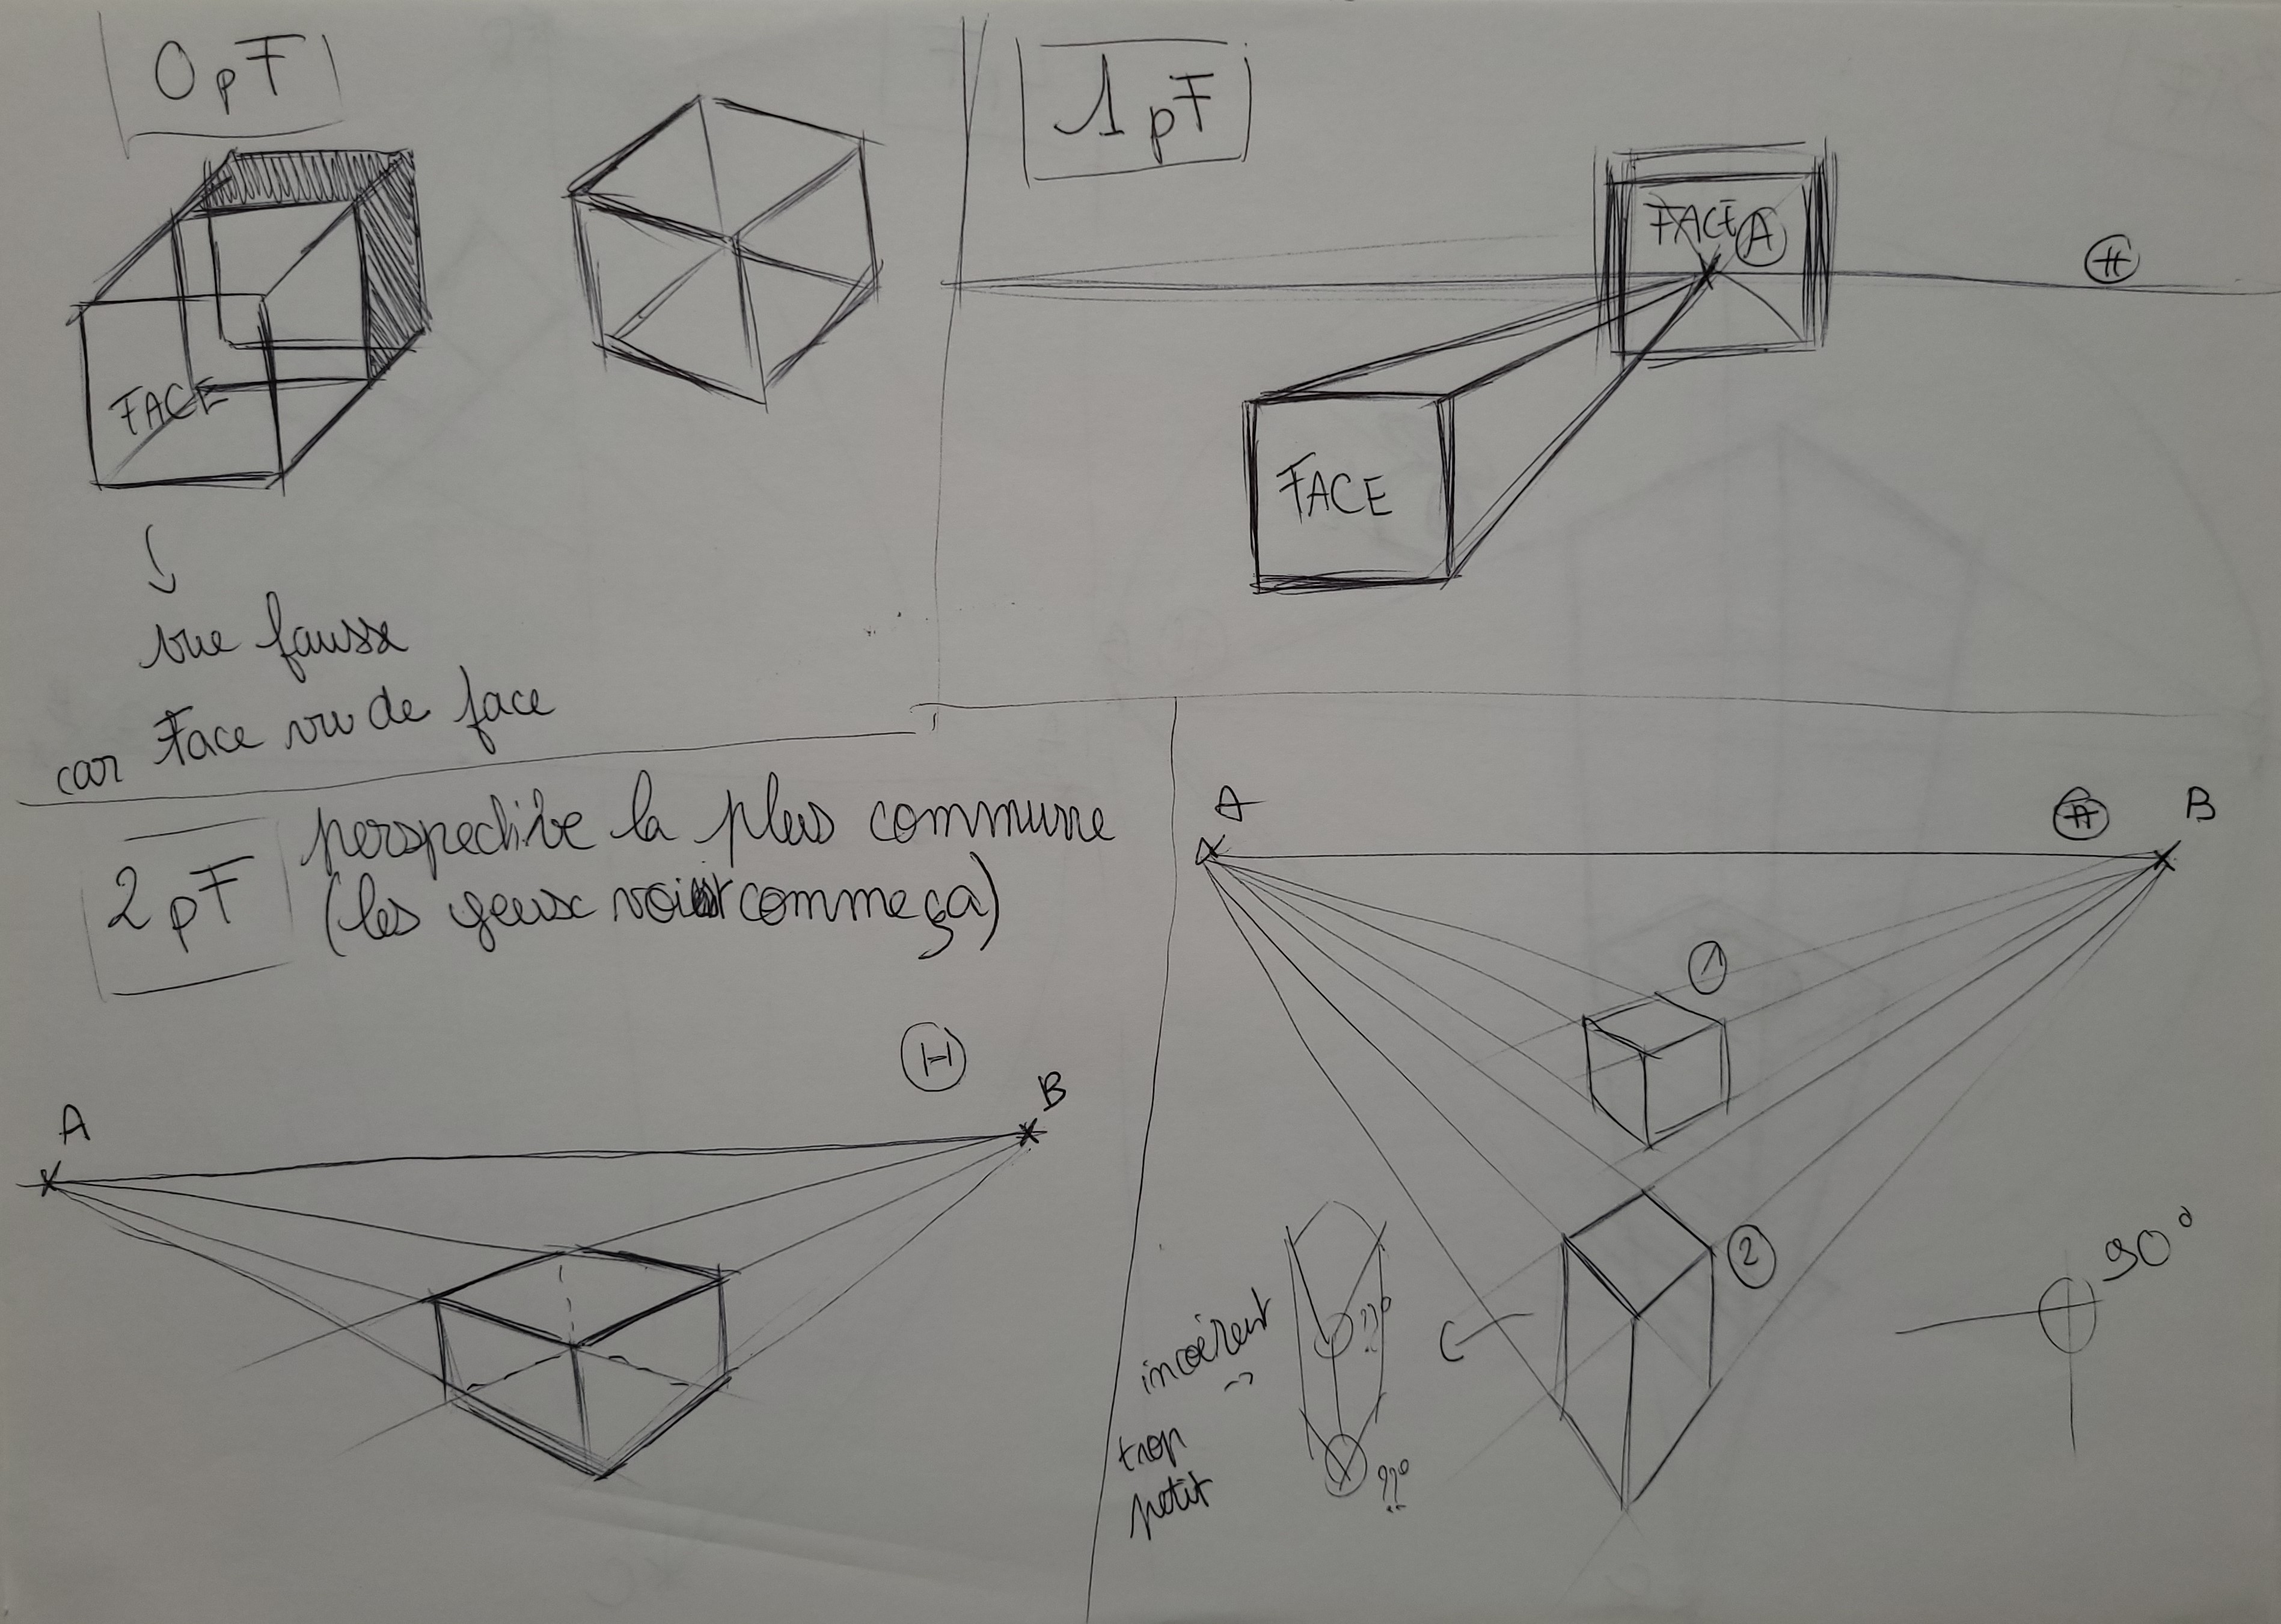 0 pF
FACE
vue fausse
car Face vu de face
1 pF
FACE A
H
FACE
2 pF
perspective la plus commune
(les yeux voient comme ça)
H
A
B
A
H
B
1
2
90°
incoérent
trop
petit
??°
??°